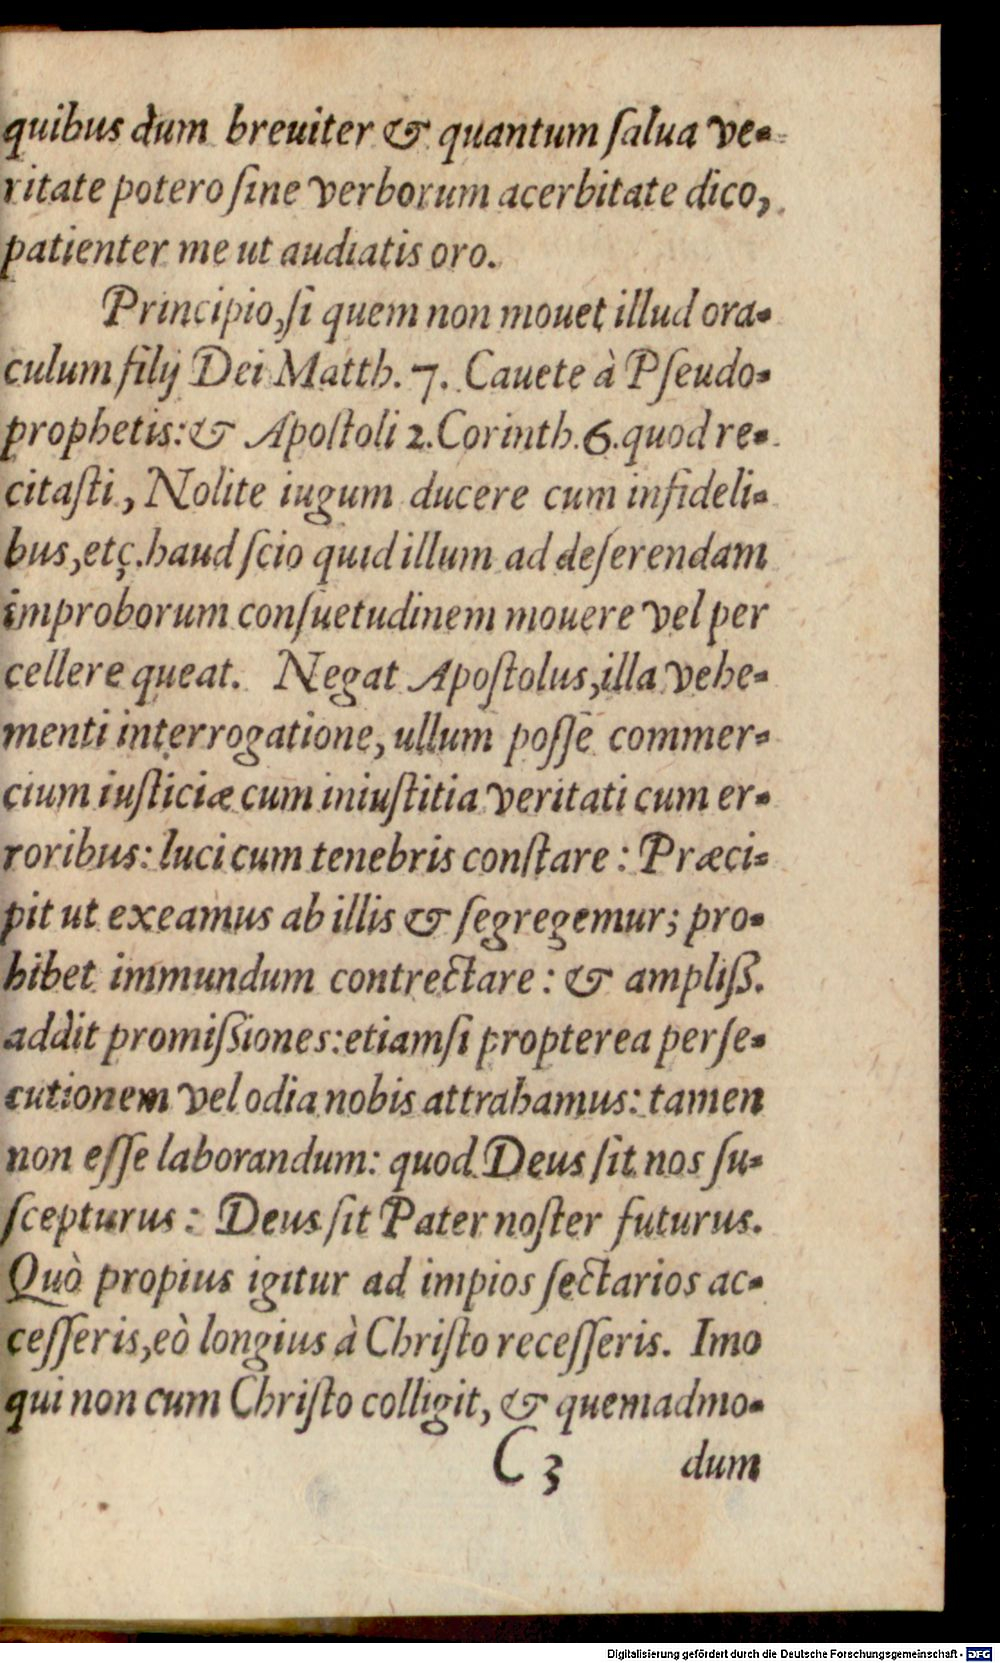 quibus dum breuiter & quantum ſalua ve-
ritate potero ſine verborum acerbitate dico,
patienter me ut audiatis oro.
Principio, ſi quem non mouet illud ora-
culum filij Dei Matth. 7. Cauete à Pſeudo-
prophetis: & Apoſtoli 2. Corinth. 6. quod re-
citaſti, Nolite iugum ducere cum infideli-
bus, etç. haud ſcio quid illum ad deſerendam
improborum conſuetudinem mouere vel per
cellere queat. Negat Apoſtolus, illa vehe-
menti interrogatione, ullum poſſe commer-
cium iuſticiæ cum iniuſtitia veritati cum er-
roribus: luci cum tenebris conſtare: Præci-
pit ut exeamus ab illis & ſegregemur; pro-
hibet immundum contrectare: & ampliß.
addit promißiones: etiamſi propterea perſe-
cutionem vel odia nobis attrahamus: tamen
non eſſe laborandum: quod Deus ſit nos ſu-
ſcepturus: Deus ſit Pater noſter futurus.
Quò propius igitur ad impios ſectarios ac-
ceſſeris, eò longius à Chriſto receſſeris. Imo
qui non cum Chriſto colligit, & quemadmo-
C 3 dum
Digitalisierung gefördert durch die Deutsche Forschungsgemeinschaft - DFG